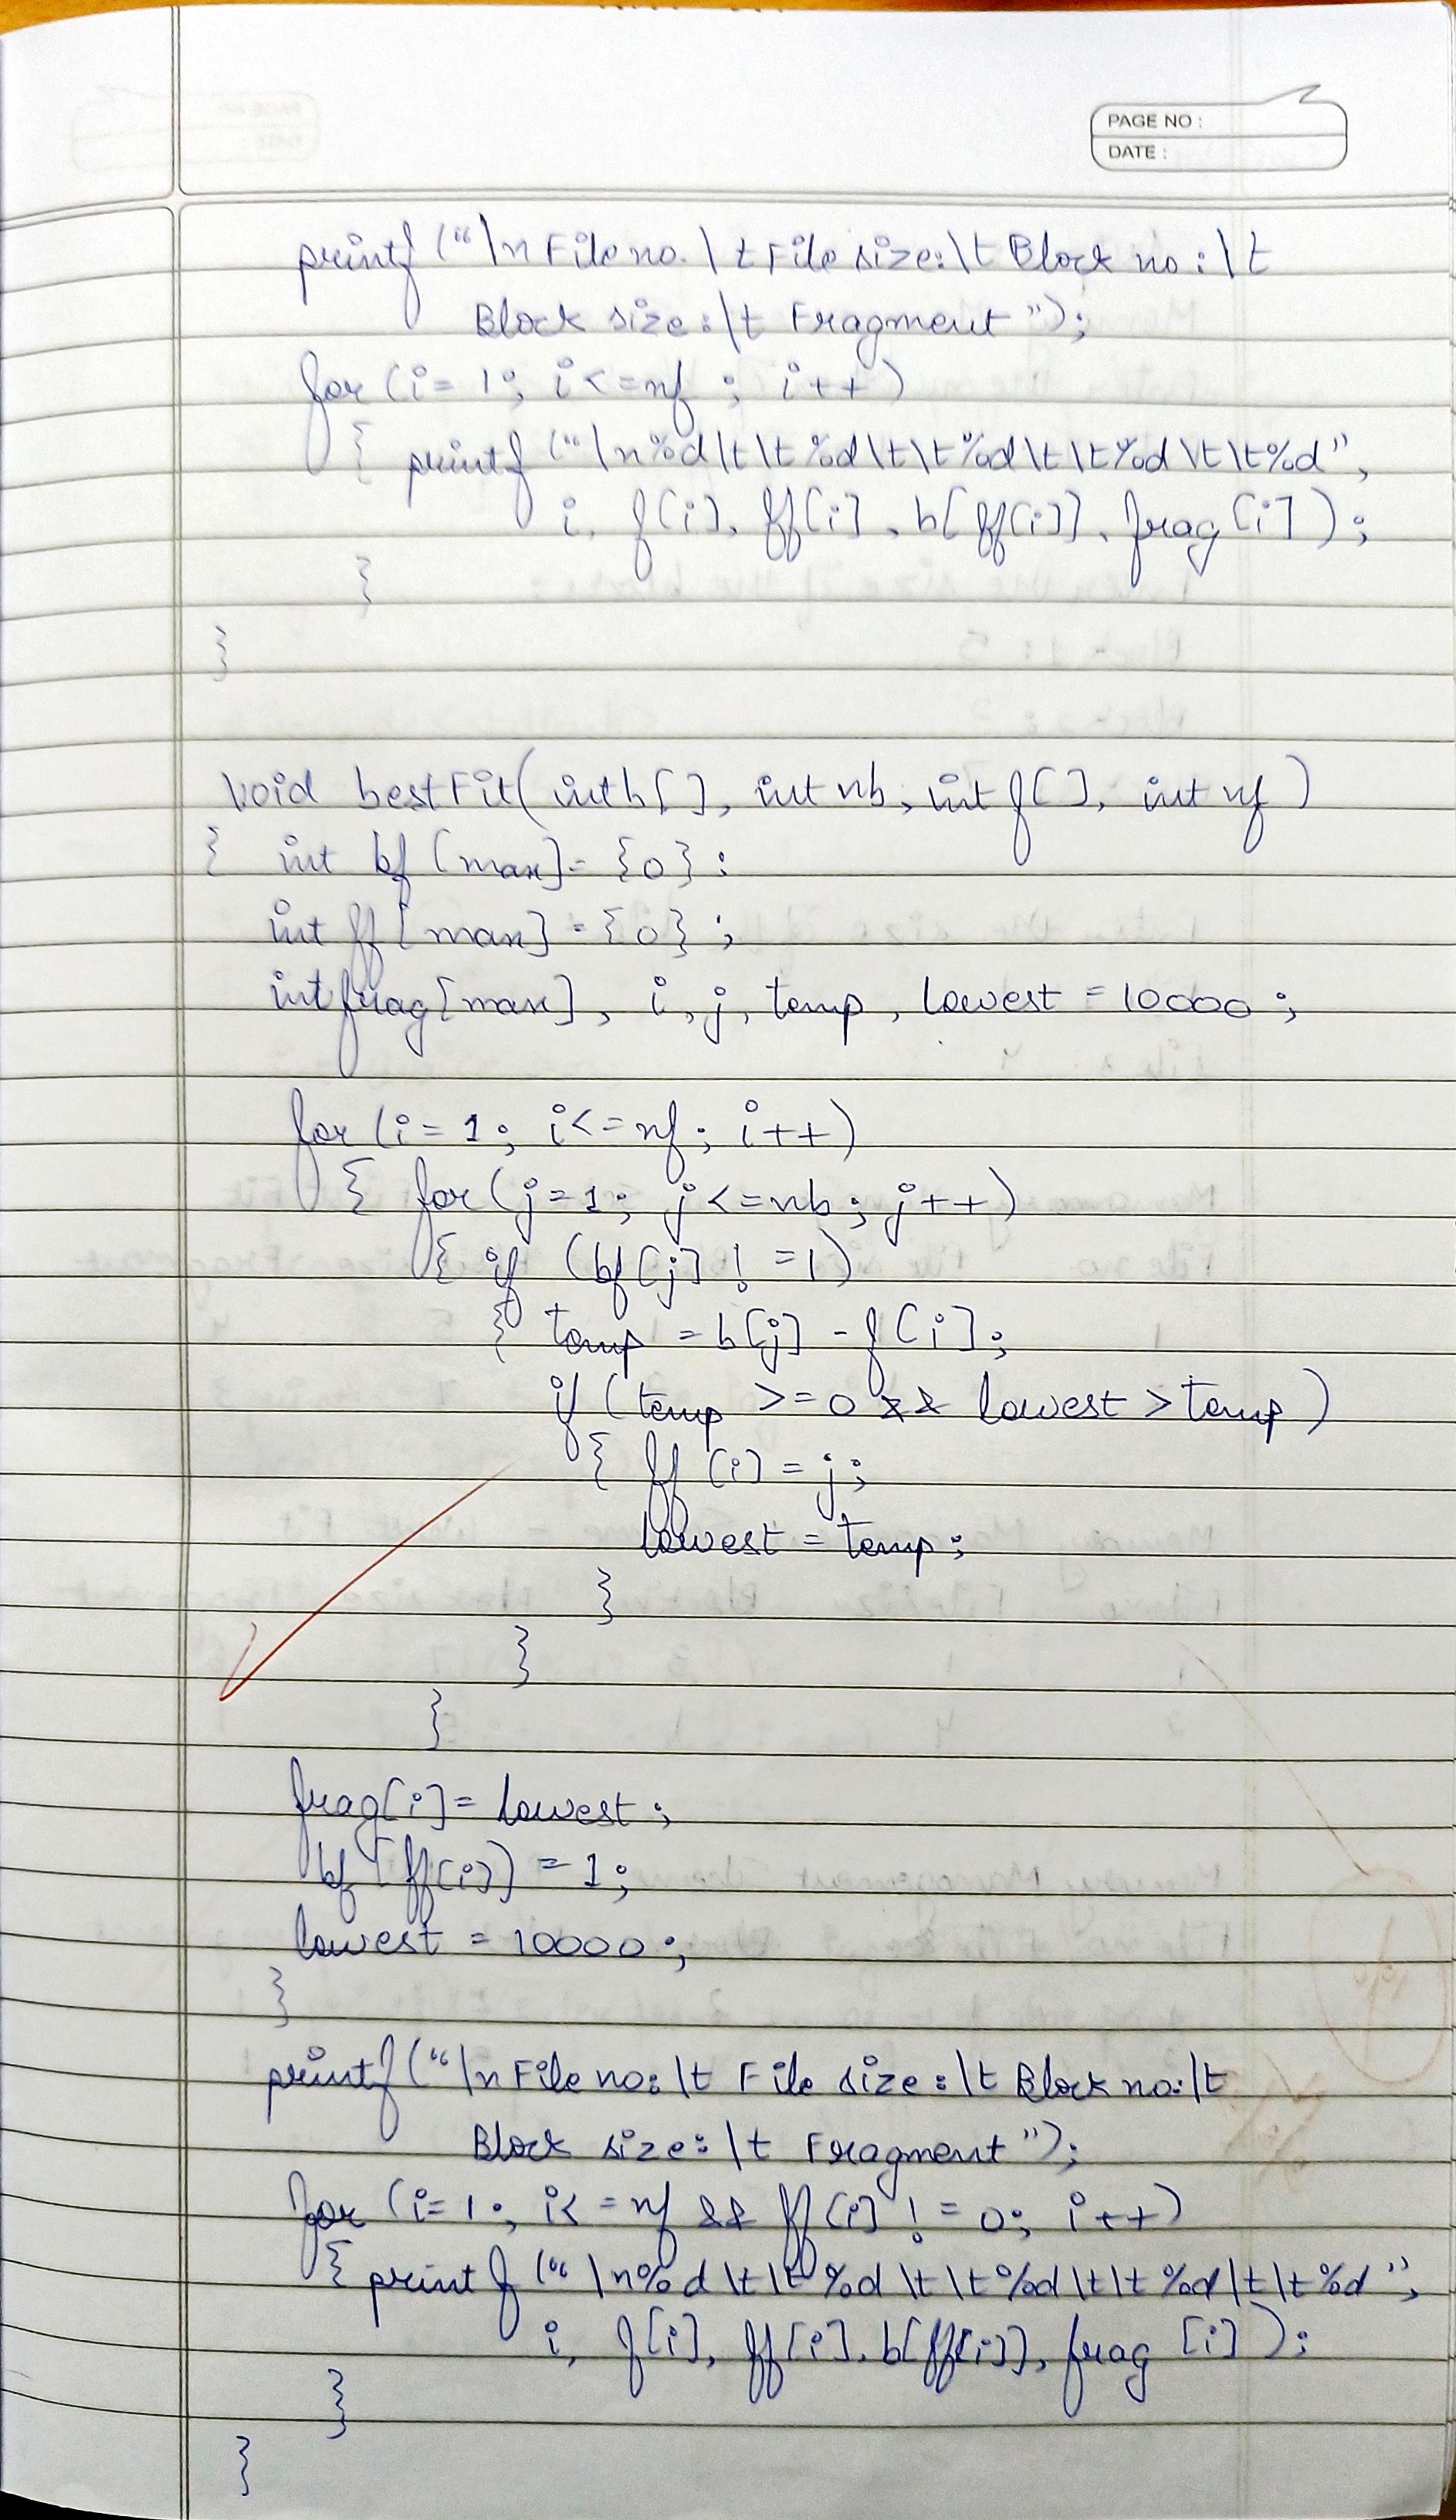 PAGE NO :
DATE :
printf ("\n File no. \t File size:\t Block no :\t
Block size:\t Fragment ");
for (i= 1; i<=nf ; i++)
{ printf ("\n%d\t\t%d\t\t%d\t\t%d\t\t%d",
i, f[i], ff[i], b[ff[i]], frag[i] );
}
}
void bestFit( int b[ ], int nb, int f[ ], int nf )
{ int bf [max]= {0};
int ff [max] = {0} ;
int frag[max], i, j, temp, lowest = 10000 ;
for (i= 1; i<=nf; i++)
{ for (j=1; j<=nb; j++)
{ if (bf[j] != 1)
{ temp = b[j] - f[i];
if (temp >=0 && lowest > temp)
{ ff [i] = j;
lowest = temp;
}
}
}
frag[i]= lowest;
bf [ff[i]] = 1;
lowest = 10000;
}
printf("\n File no:\t File size:\t Block no:\t
Block size:\t Fragment ");
for (i=1; i<=nf && ff[i] != 0; i++)
{ printf ("\n%d\t\t%d\t\t%d\t\t%d\t\t%d",
i, f[i], ff[i], b[ff[i]], frag [i] );
}
}